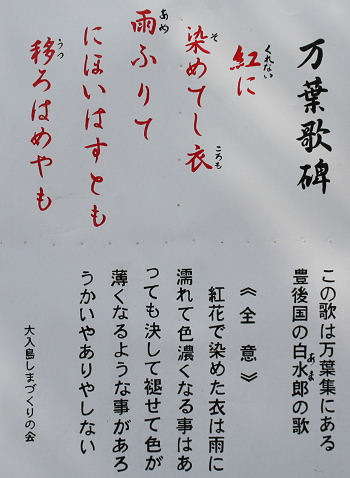 万葉歌碑
紅に
くれない
染めてし衣
そ
ころも
雨ふりて
あめ
にほいはすとも
移ろはめやも
うつ
この歌は万葉集にある
豊後国の白水郎の歌
あま
《全意》
紅花で染めた衣は雨に
濡れて色濃くなる事はあ
っても決して褪せて色が
薄くなるような事があろ
うかいやありやしない
大入島しまづくりの会